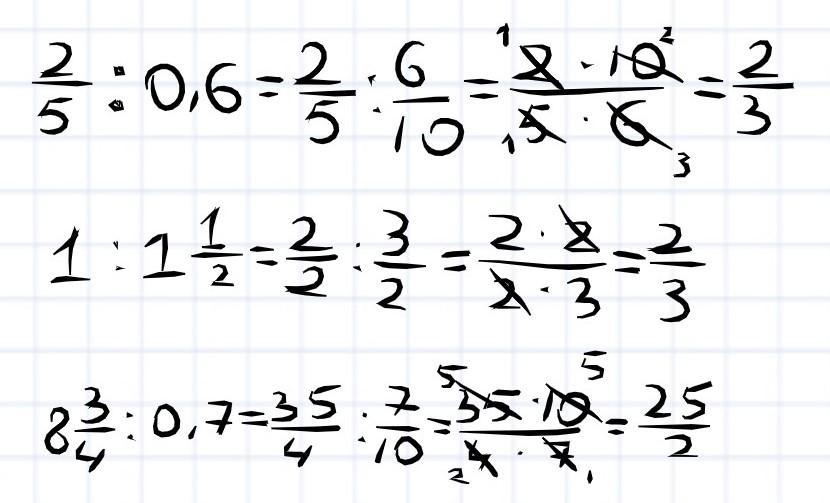 2/5 : 0,6 = 2/5 : 6/10 = ¹2 · 10² / ₁5 · 6₃ = 2/3
1 : 1 1/2 = 2/2 : 3/2 = 2 · 2 / 2 · 3 = 2/3
8 3/4 : 0,7 = 35/4 : 7/10 = ⁵35 · 10⁵ / ₂4 · 7₁ = 25/2